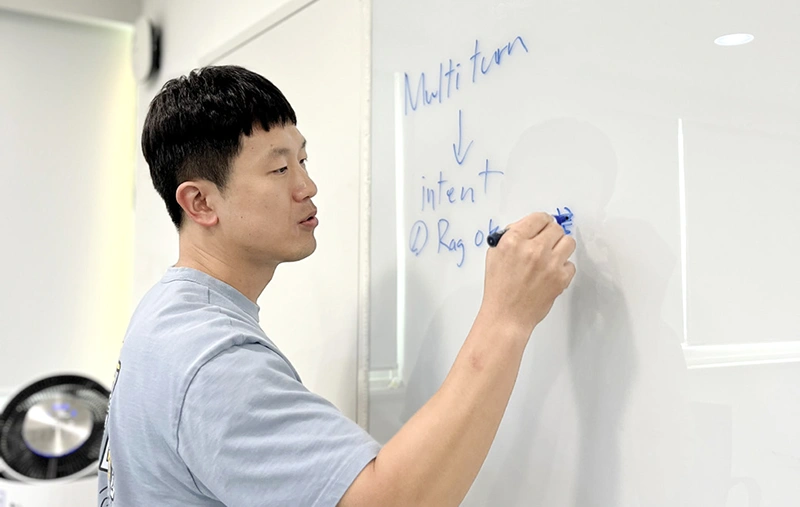 Multi turn
↓
intent
① Rag